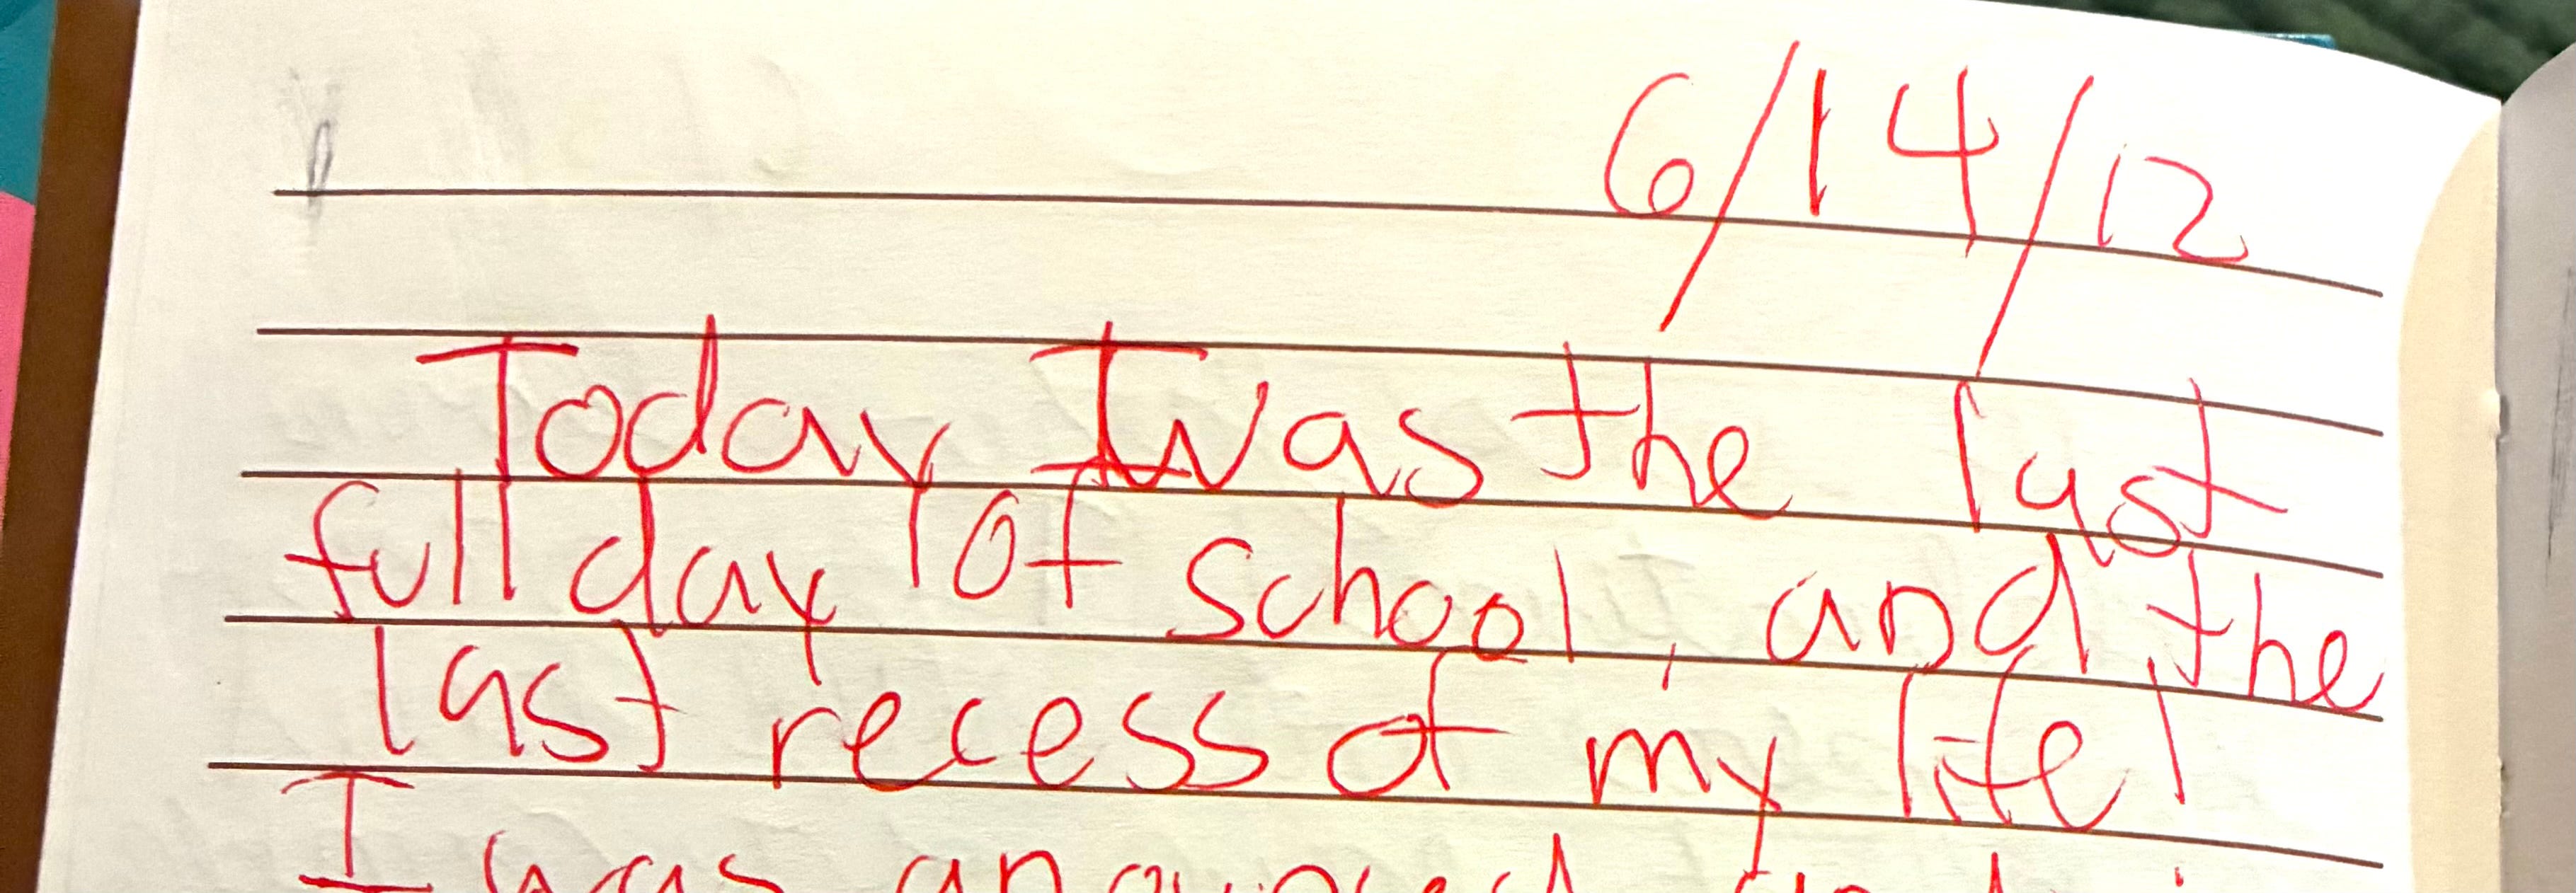 6/14/12
Today was the last
full day of school, and the
last recess of my life!
I was anounced